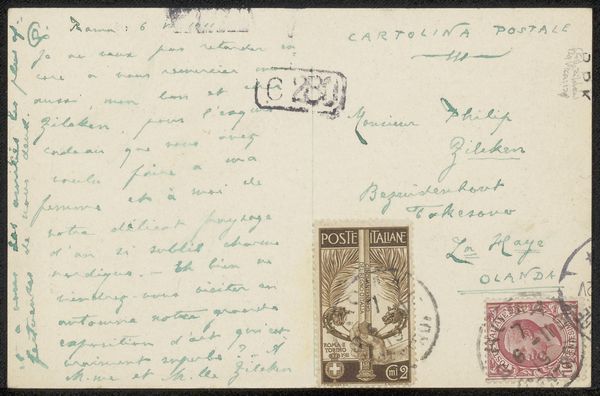 Roma: 6 VI 1911
Je ne veux pas retarder en
core à vous remercier
aussi, mon bon et cher
Zilcken, pour l'exquis
cadeau que vous avez
voulu faire à ma
femme et à moi de
votre délicat paysage
d'un si subtil charme
nordique. — Eh bien ne
viendrez-vous visiter en
automne notre grande
exposition d'art qui est
vraiment superbe? — A
M.me et M.lle Zilcken
et à vous les amitiés les plus af-
fectueuses de nous deux.
CARTOLINA POSTALE
C 280
Monsieur Philip
Zilcken
Bezuidenhout
La Haye
OLANDA
POSTE ITALIANE
ROMA E
TORINO
CMI 2